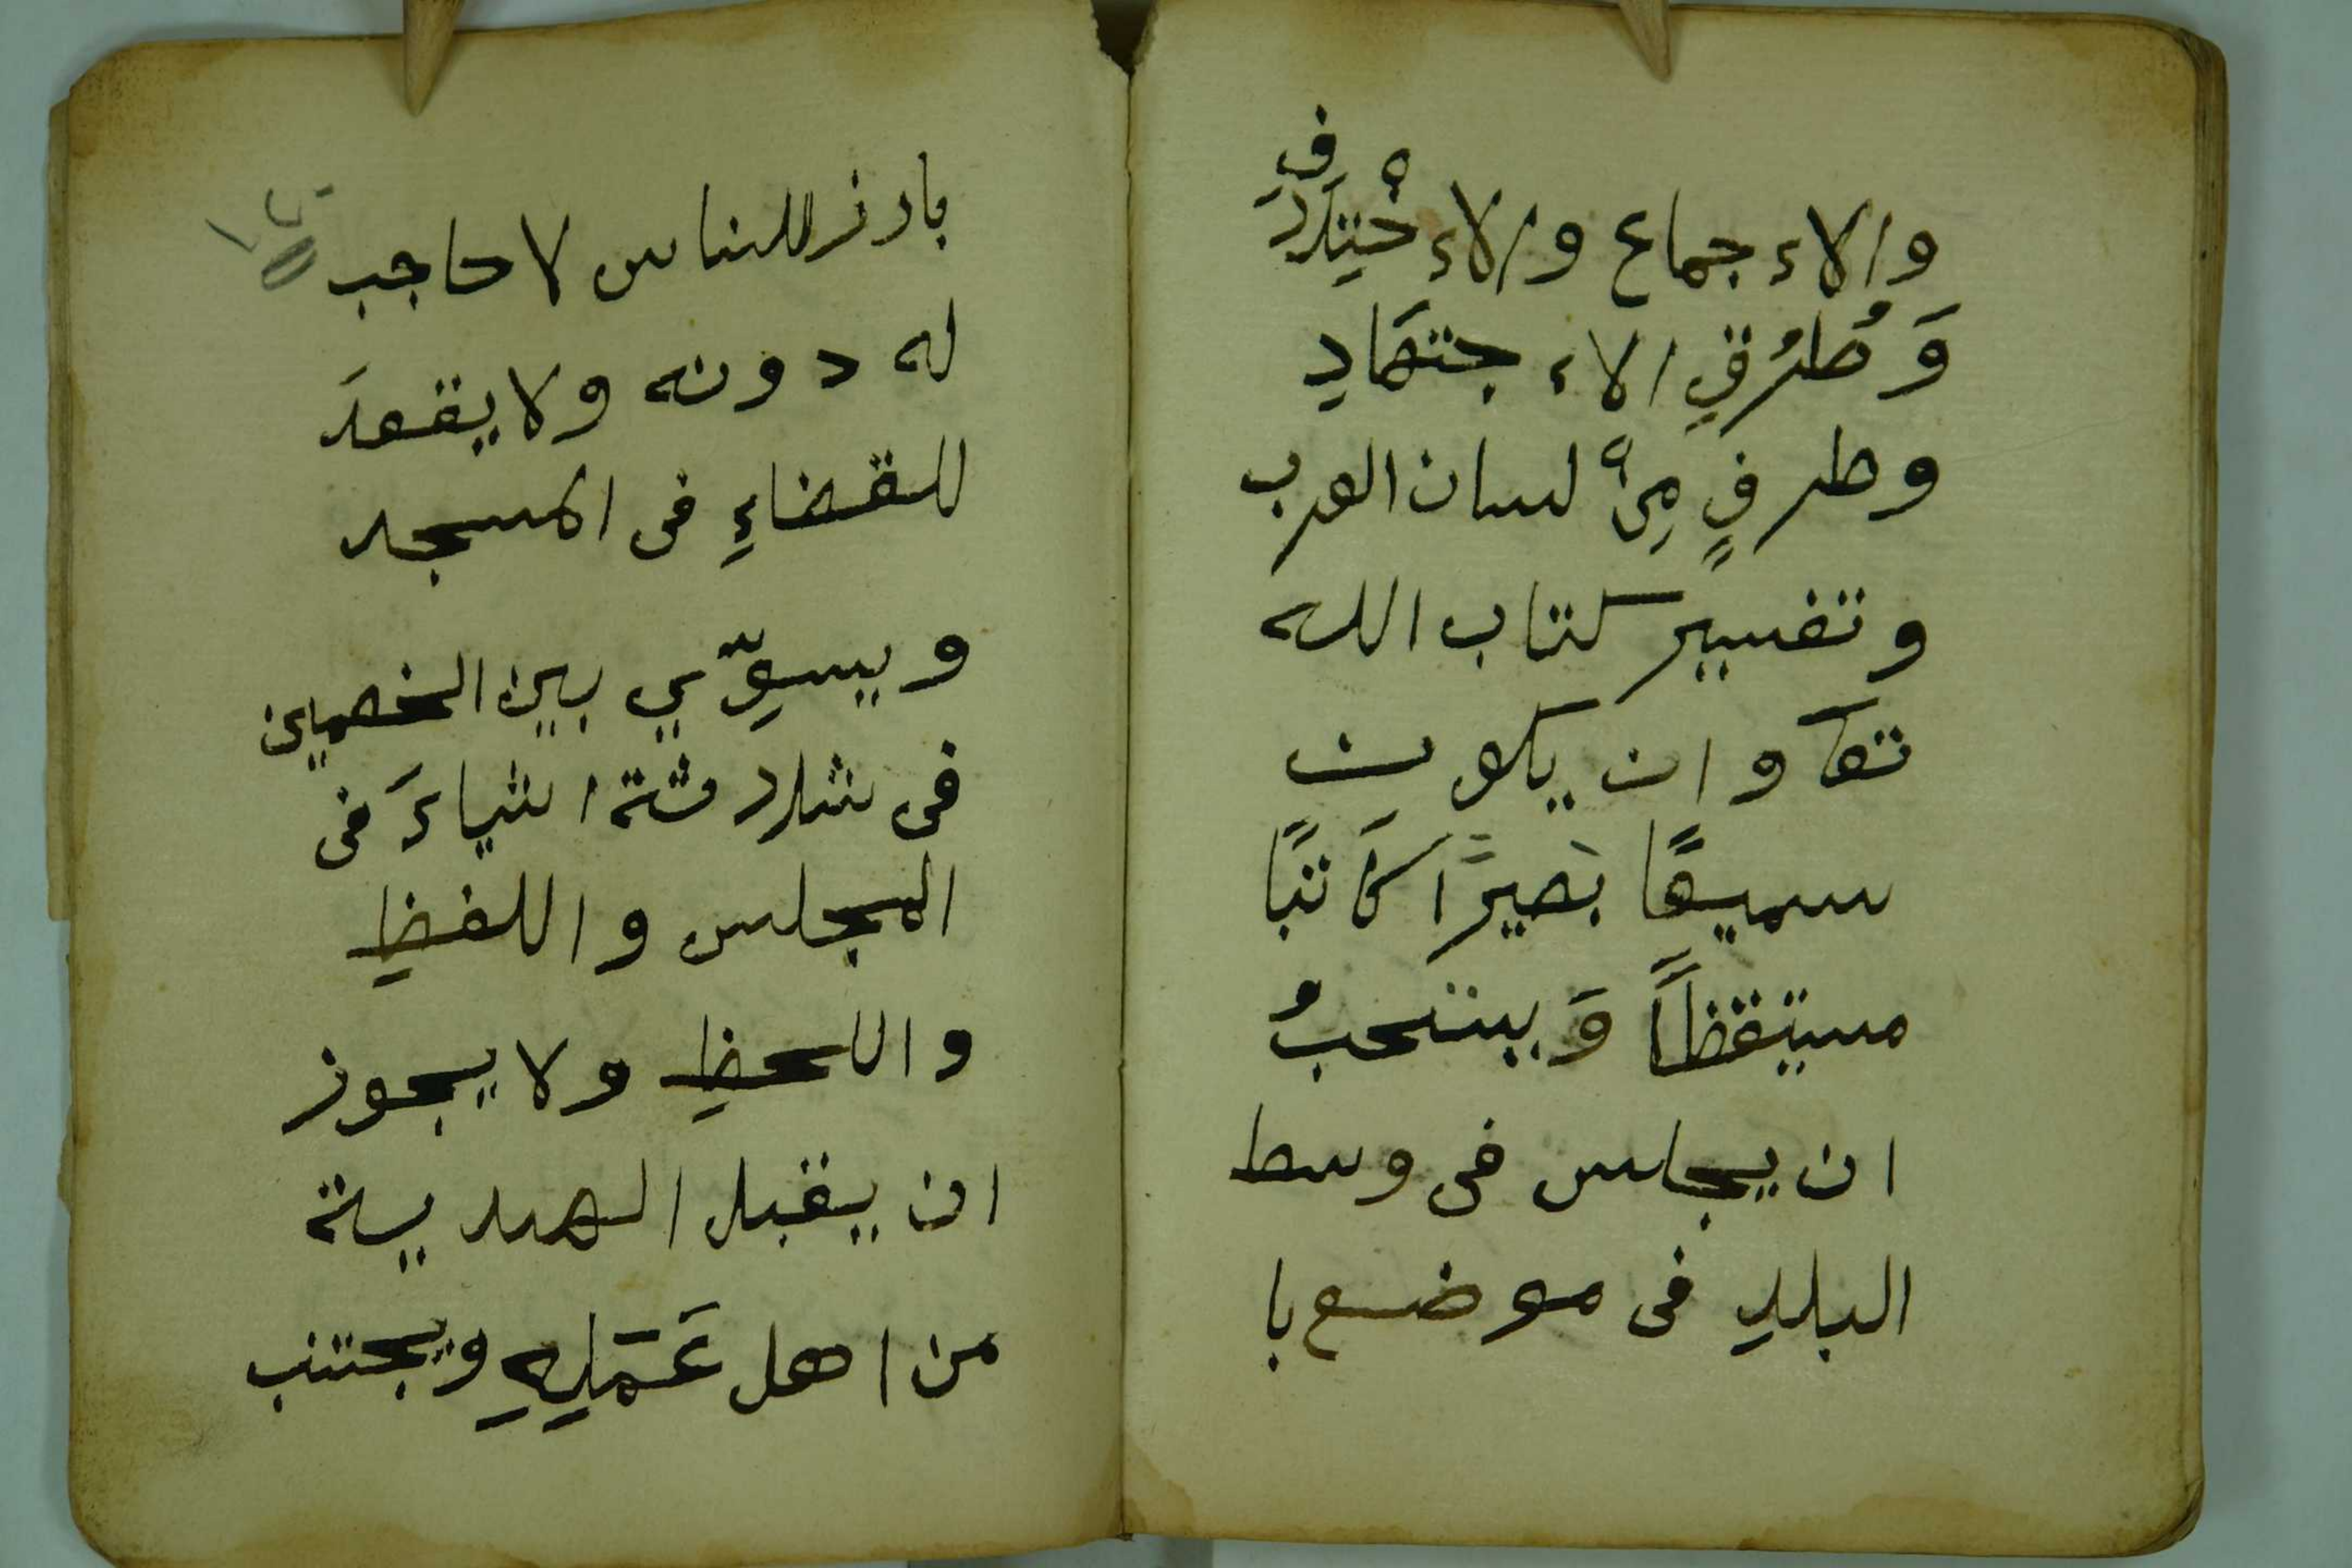 والاءجماع والاءخْتِلَادفِ
وَطُرُقِ الاءجتهَادِ
وطرفٍ مِنْ لسان العرب
وتفسير كتاب الله
تعآ وان يكون
سميعًا بَصيرًا كَاتبًا
مستيقظًا وَيستحبُ
ان يجلس فى وسط
البلدِ فى موضع با
بادز للناس لا حاجب
له دونه ولا يقعدَ
للقضاءِ فى المسجد
ويسوِّي بين الخصمين
فى ثلادثة اشياءَ فى
المجلس واللفظِ
واللحظِ ولا يجوز
ان يقبل الهدية
من اهل عَمَلِهِ ويجتنب